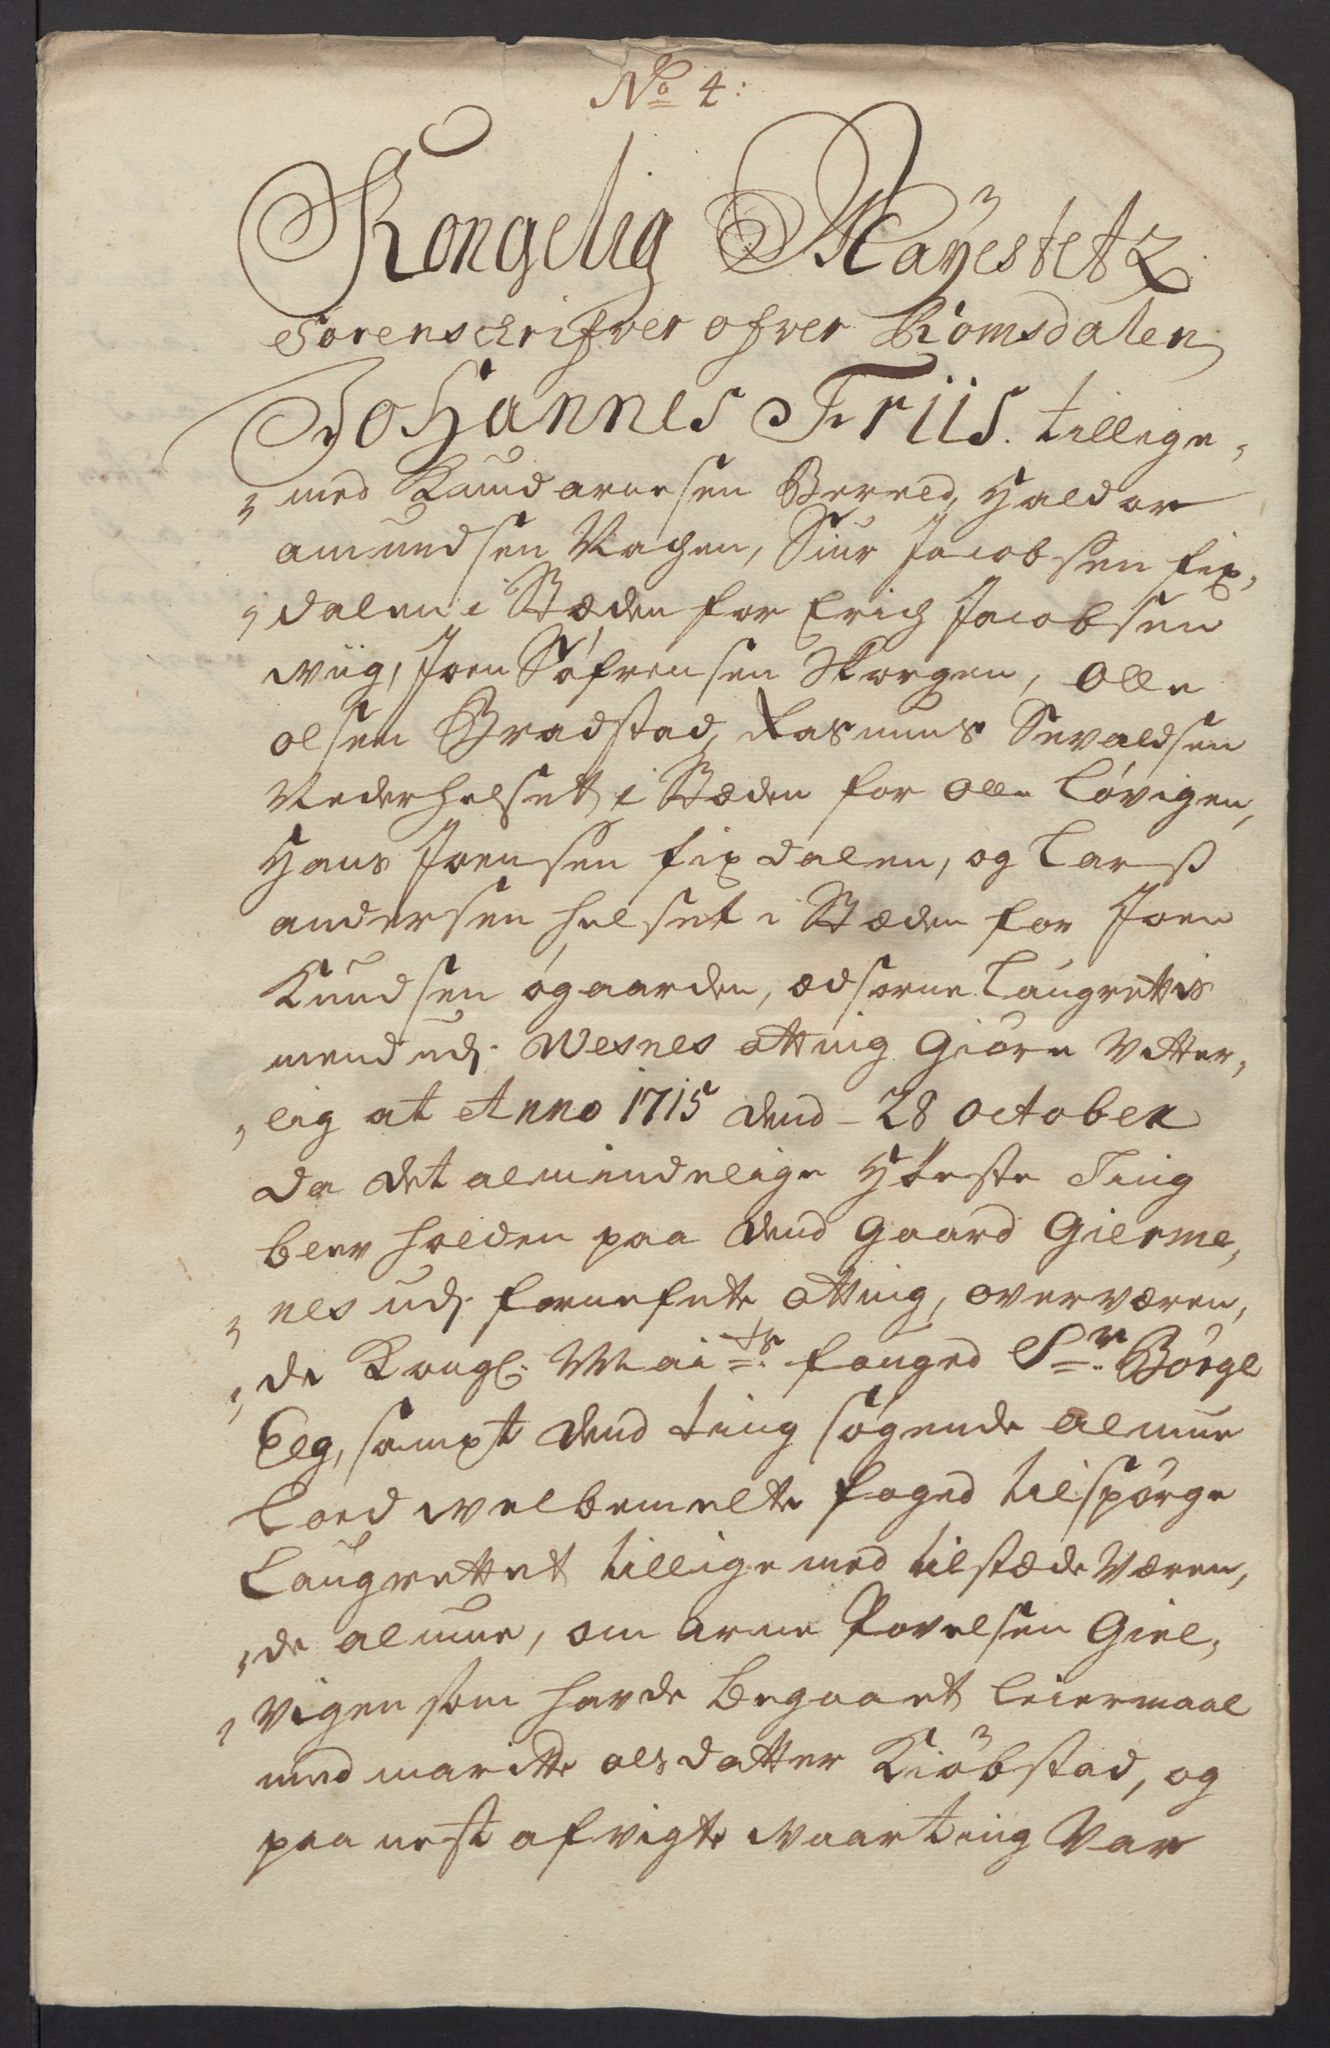 No 4:
Kongelig Mayestetz
Sorenschrifver ofver Romsdalen
Johannes Friis. tillige,
med Knud arnesen Bereld, Haldor
amundsen Vagen, Siur Jacobsen fix,
dalen i Stæden for Erich Jacobsen
wiig, Joen Söfrensen Skorgen, Olle
olsen Bradstad, Rasmus Sevaldsen
Nederhelset i Stæden for Olle Løvigen,
Hans Joensen fixdalen, og Larß
andersen helset i Stæden for Joen
Knudsen øgaarden, Ædsorne Laugrettis
mend udj Wesnes otting Giöre Vitter,
lig at Anno 1715 dend 28 October
da det almindelige Høste Ting
blev holden paa dend Gaard Gierme,
nes udj fornefnte otting, overværen,
de Kongl: Maits fouged Sr Börge
Elg, sampt dend ting søgende almue
Loed welbemelte foged tilspørge
Laugrettet tillige med tilstæde Væren,
de almue, om Arne Povelsen Giel,
vigen som hafde begaaet Leiermaal
med maritte olsdatter Kiöbstad, og
paa nest afvigte waarting Var